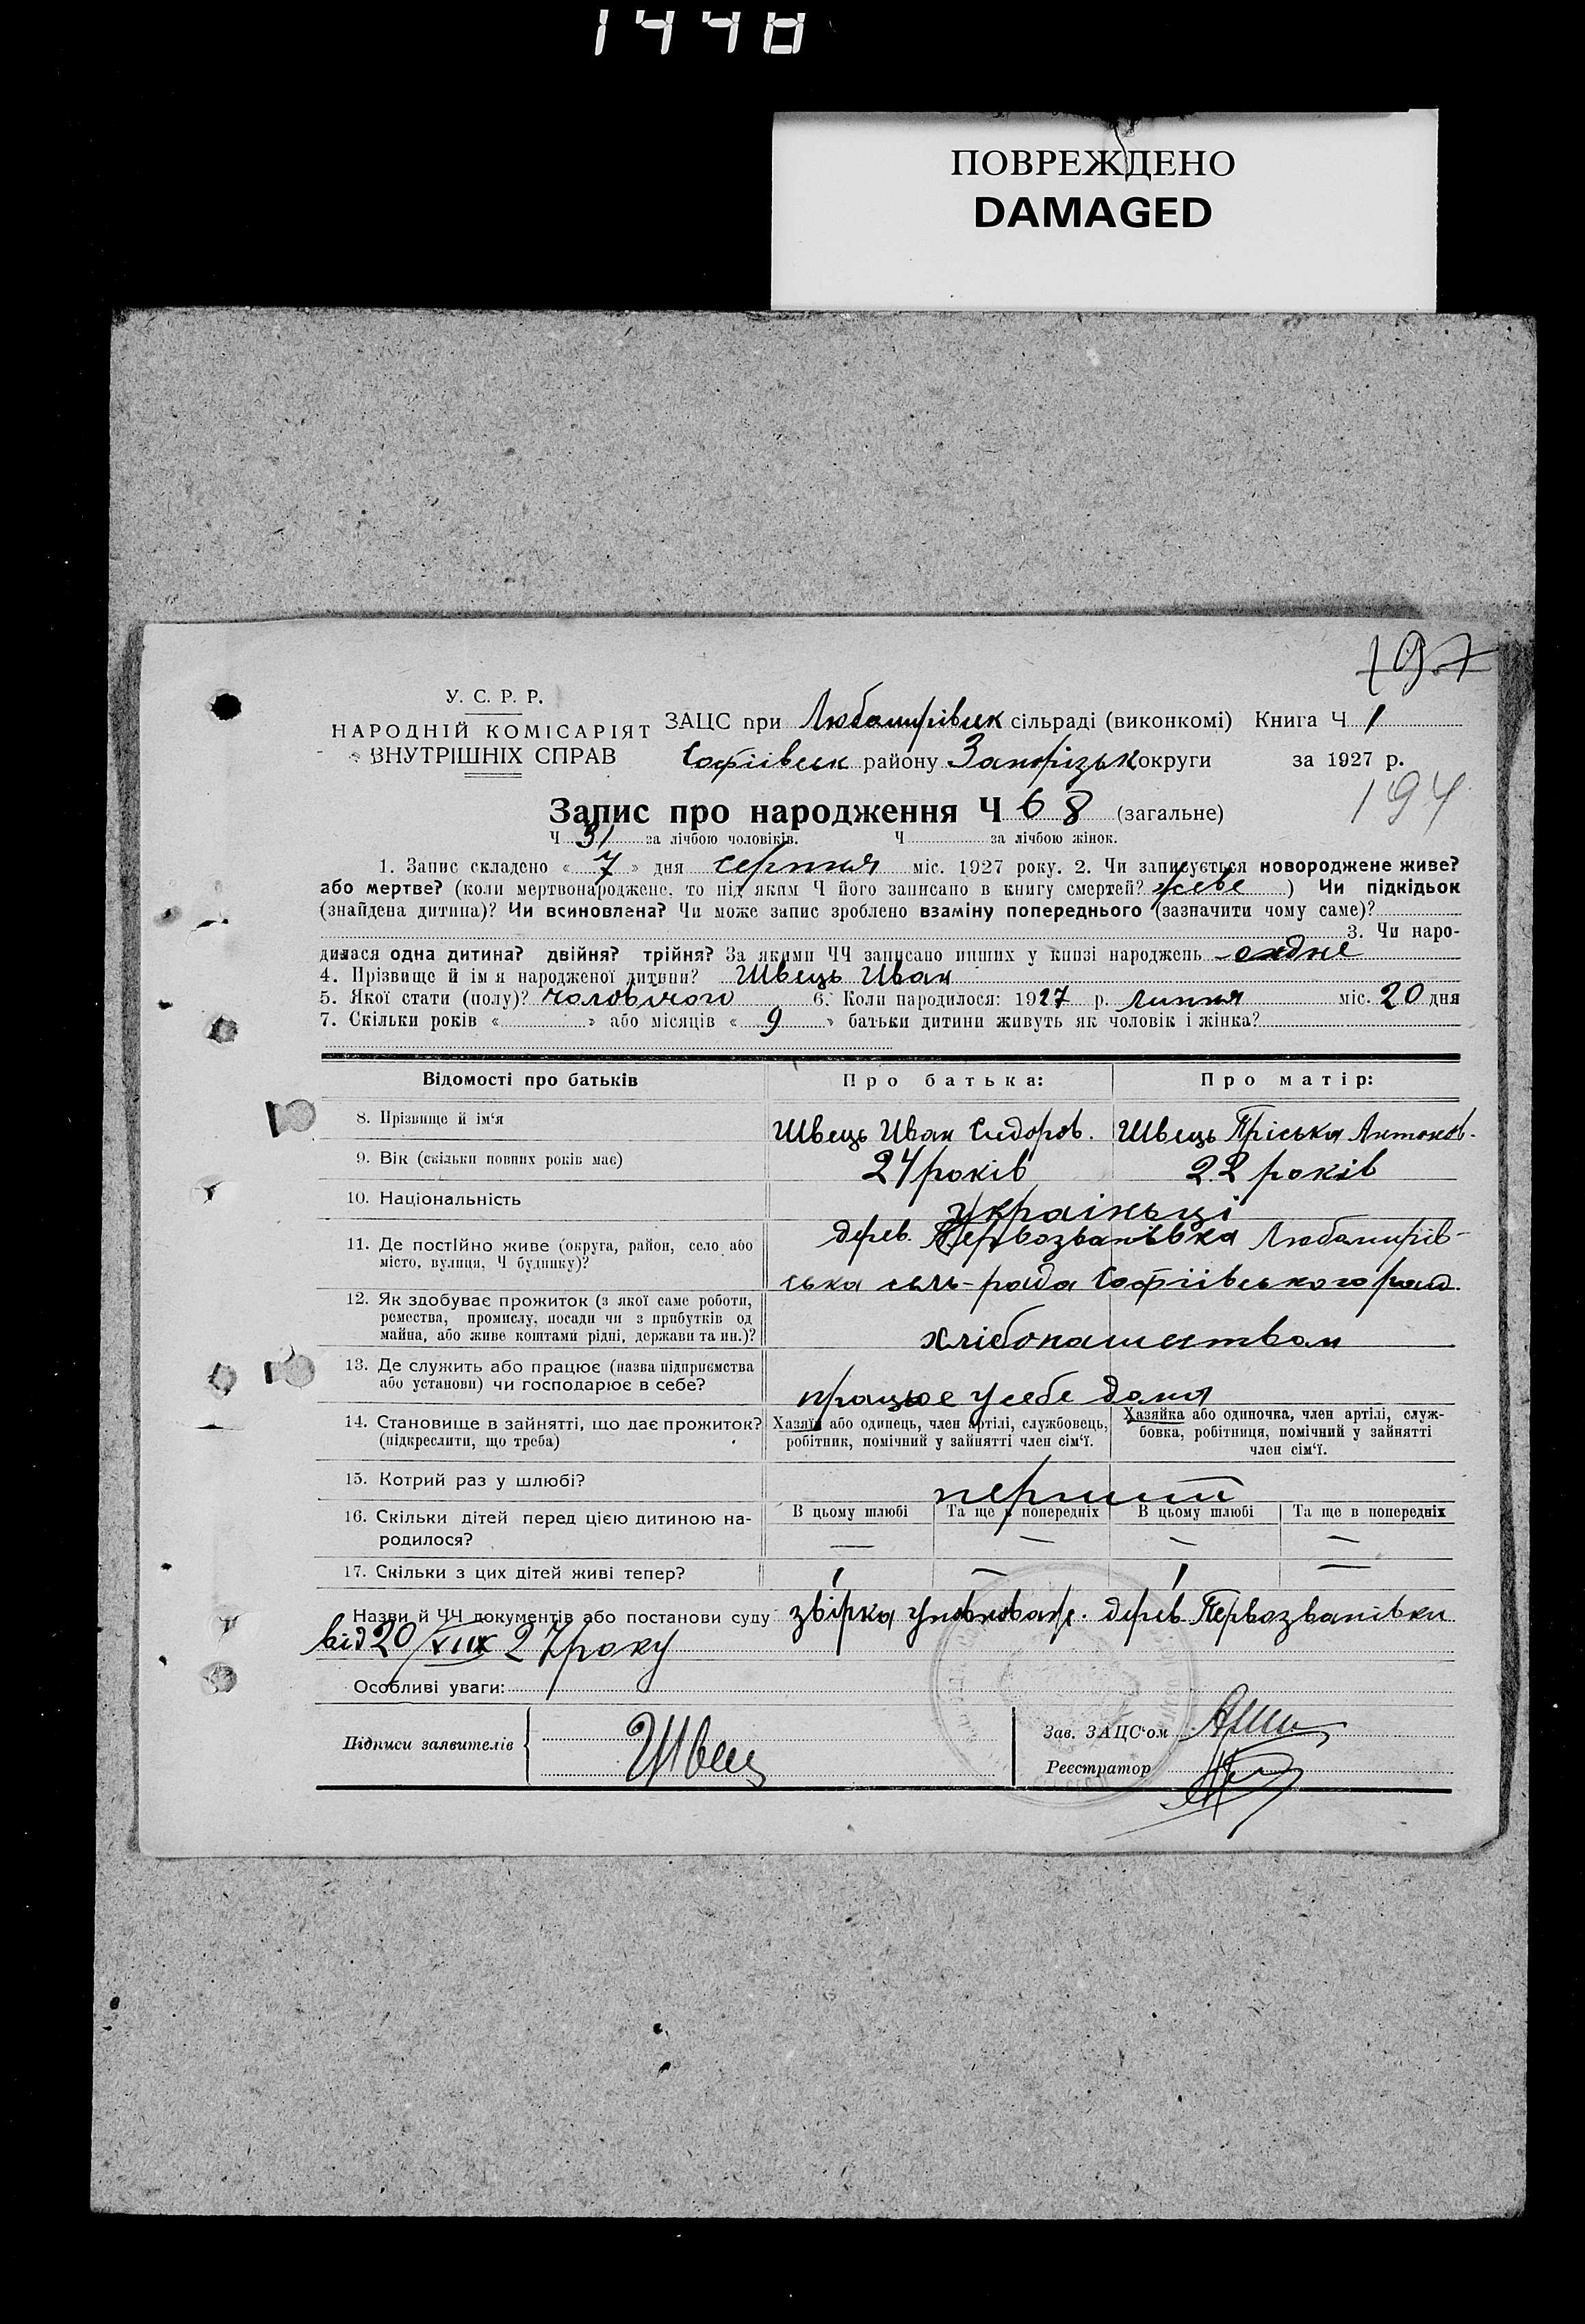 1448
ПОВРЕЖДЕНО
DAMAGED
197
У. С. Р. Р.
НАРОДНІЙ КОМІСАРІЯТ
ВНУТРІШНІХ СПРАВ
ЗАЦС при Любомирівськ сільраді (виконкомі) Книга Ч 1
Софіівськ району Запорізьк округи за 1927 р.
194
Запис про народження Ч 68 (загальне)
Ч 31 за лічбою чоловіків. Ч за лічбою жінок.
1. Запис складено « 7 » дня серпня міс. 1927 року. 2. Чи записується новороджене живе?
або мертве? (коли мертвонароджене, то під яким Ч його записано в книгу смертей? живе ) Чи підкідьок
(знайдена дитина)? Чи всиновлена? Чи може запис зроблено взаміну попереднього (зазначити чому саме)?
3. Чи наро-
дилася одна дитина? двійня? трійня? За якими ЧЧ записано инших у книзі народжень
4. Прізвище й імя народженої дитини? Швець Иван
5. Якої стати (полу)? чоловічого 6. Коли народилося: 1927 р. липня міс. 20 дня
7. Скільки років « » або місяців « 9 » батьки дитини живуть як чоловік і жінка?
Відомості про батьків Про батька: Про матір:
8. Прізвище й ім‘я Швець Иван Сидоров. Швець Пріська Антонов.
9. Вік (скільки повних років має) 24 років 22 років
10. Національність україньці
11. Де постійно живе (округа, район, село або
місто, вулиця, Ч будинку)?
дерев. Первозванівка Любомирів-
ська сель-рада Софіівського рай.
12. Як здобуває прожиток (з якої саме роботи,
ремества, промислу, посади чи з прибутків од
майна, або живе коштами рідні, держави та ин.)?
хлібопашеством
13. Де служить або працює (назва підприємства
або установи) чи господарює в себе?
працює у себе дома
14. Становище в зайнятті, що дає прожиток?
(підкреслити, що треба)
Хазяїн або одинець, член артілі, службовець,
робітник, помічний у зайнятті член сім‘ї.
Хазяйка або одиночка, член артілі, служ-
бовка, робітниця, помічний у зайнятті
член сім‘ї.
15. Котрий раз у шлюбі? перший
16. Скільки дітей перед цією дитиною на-
родилося?
В цьому шлюбі Та ще в попередніх В цьому шлюбі Та ще в попередніх
— — — —
17. Скільки з цих дітей живі тепер? 1 — 1 —
Назви й ЧЧ документів або постанови суду звірка дерев. Первозванівки
від 20/VIIX 27 року
Особливі уваги:
Підписи заявителів Швец
Зав. ЗАЦС‘ом
Реєстратор